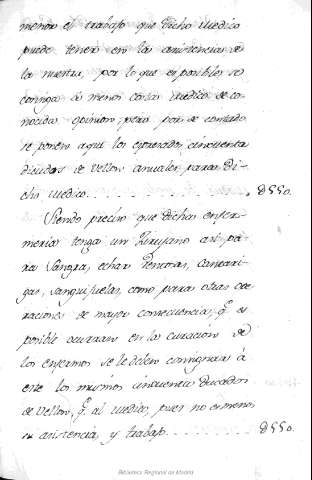 menor el trabajo que dicho medico
puede tener en las asistencias de
la nuestra, por lo que es posible se
consiga â menos costa medico de co-
nocida opinion; pero por de contado
se ponen aqui los expresados cinquenta
ducados de vellon anuales para di-
cho medico . . . . . . . . . . . . . . . . D550.
Siendo preciso que dichas enfer-
merias tenga un Zirujano asi pa-
ra sangrar, echar ventosas, cantari-
gas, sanguijuelas, como para otras ope-
raciones de mayor consecuencia, q.e es
posible ocurran en la curacion de
los enfermos se le deben consignar â
este los mismos cinquenta ducados
de vellon, q.e al medico, pues no es menos
su asistencia, y trabajo . . . . . . . . D550.
Biblioteca Regional de Madrid